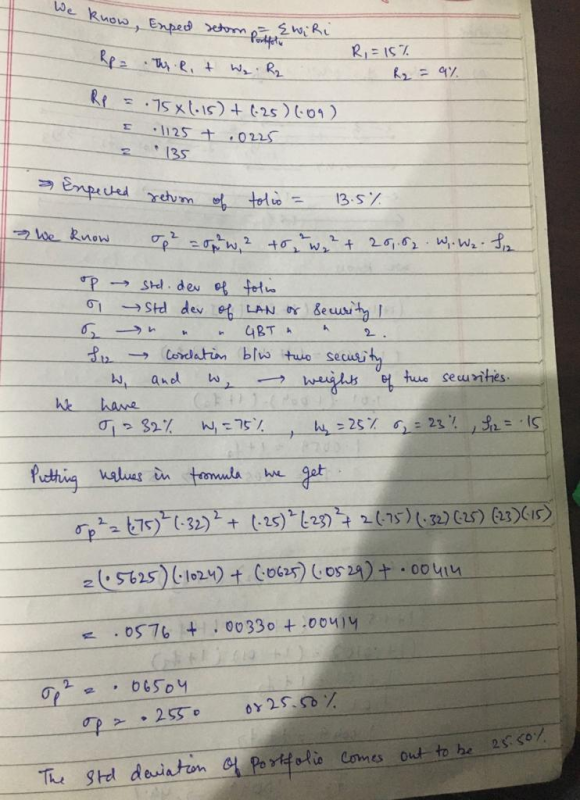 We know, Exped return Portfolio = Σ wi Ri
R1 = 15%
Rp = . W1. R1 + W2 . R2
R2 = 9%
Rp = .75 x (.15) + (.25) (.09)
= .1125 + .0225
= .135
⇒ Expected return of folio = 13.5%
⇒ We know σp² = σ1² w1² + σ2² w2² + 2 σ1.σ2 . w1. w2 . ρ12
σp → std. dev of folio
σ1 → Std dev of LAN or Security 1
σ2 → " " " GBT " " 2.
ρ12 → Corelation b/w two security
W1 and W2 → weights of two securities.
We have
σ1 = 32% W1 = 75% , W2 = 25% σ2 = 23% , ρ12 = .15
Putting values in formula we get
σp² = (.75)² (.32)² + (.25)² (.23)² + 2 (.75) (.32) (.25) (.23) (.15)
= (.5625) (.1024) + (.0625) (.0529) + .00414
= .0576 + .00330 + .00414
σp² = .06504
σp = .2550 or 25.50%
The Std deviation of Portfolio Comes out to be 25.50%.